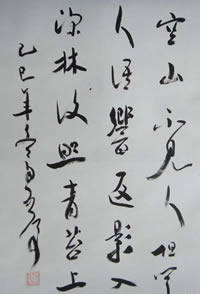 空山不見人但聞
人語響返影入
深林復照青苔上
己巳年